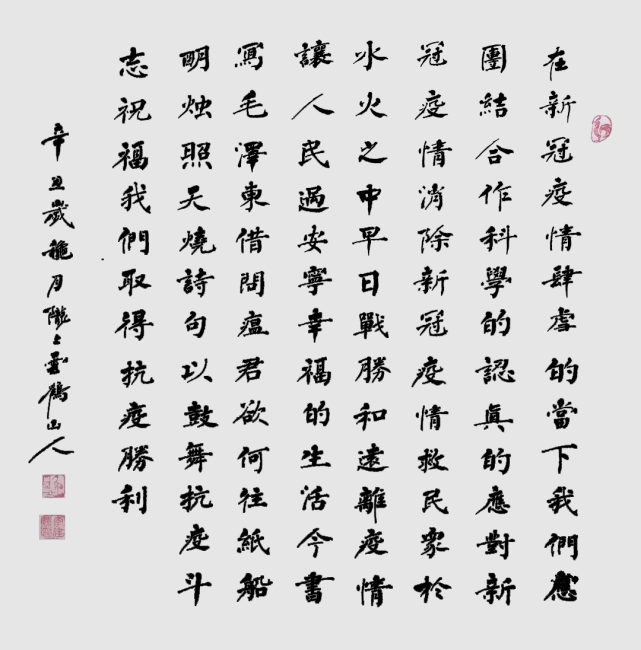 在新冠疫情肆虐的當下我們應
團結合作科學的認眞的應對新
冠疫情消除新冠疫情救民眾於
水火之中早日戰勝和遠離疫情
讓人民過安寧幸福的生活今書
寫毛澤東借問瘟君欲何往紙船
明烛照天燒詩句以鼓舞抗疫斗
志祝福我們取得抗疫勝利
辛丑歲龝月隴上雲鶴山人